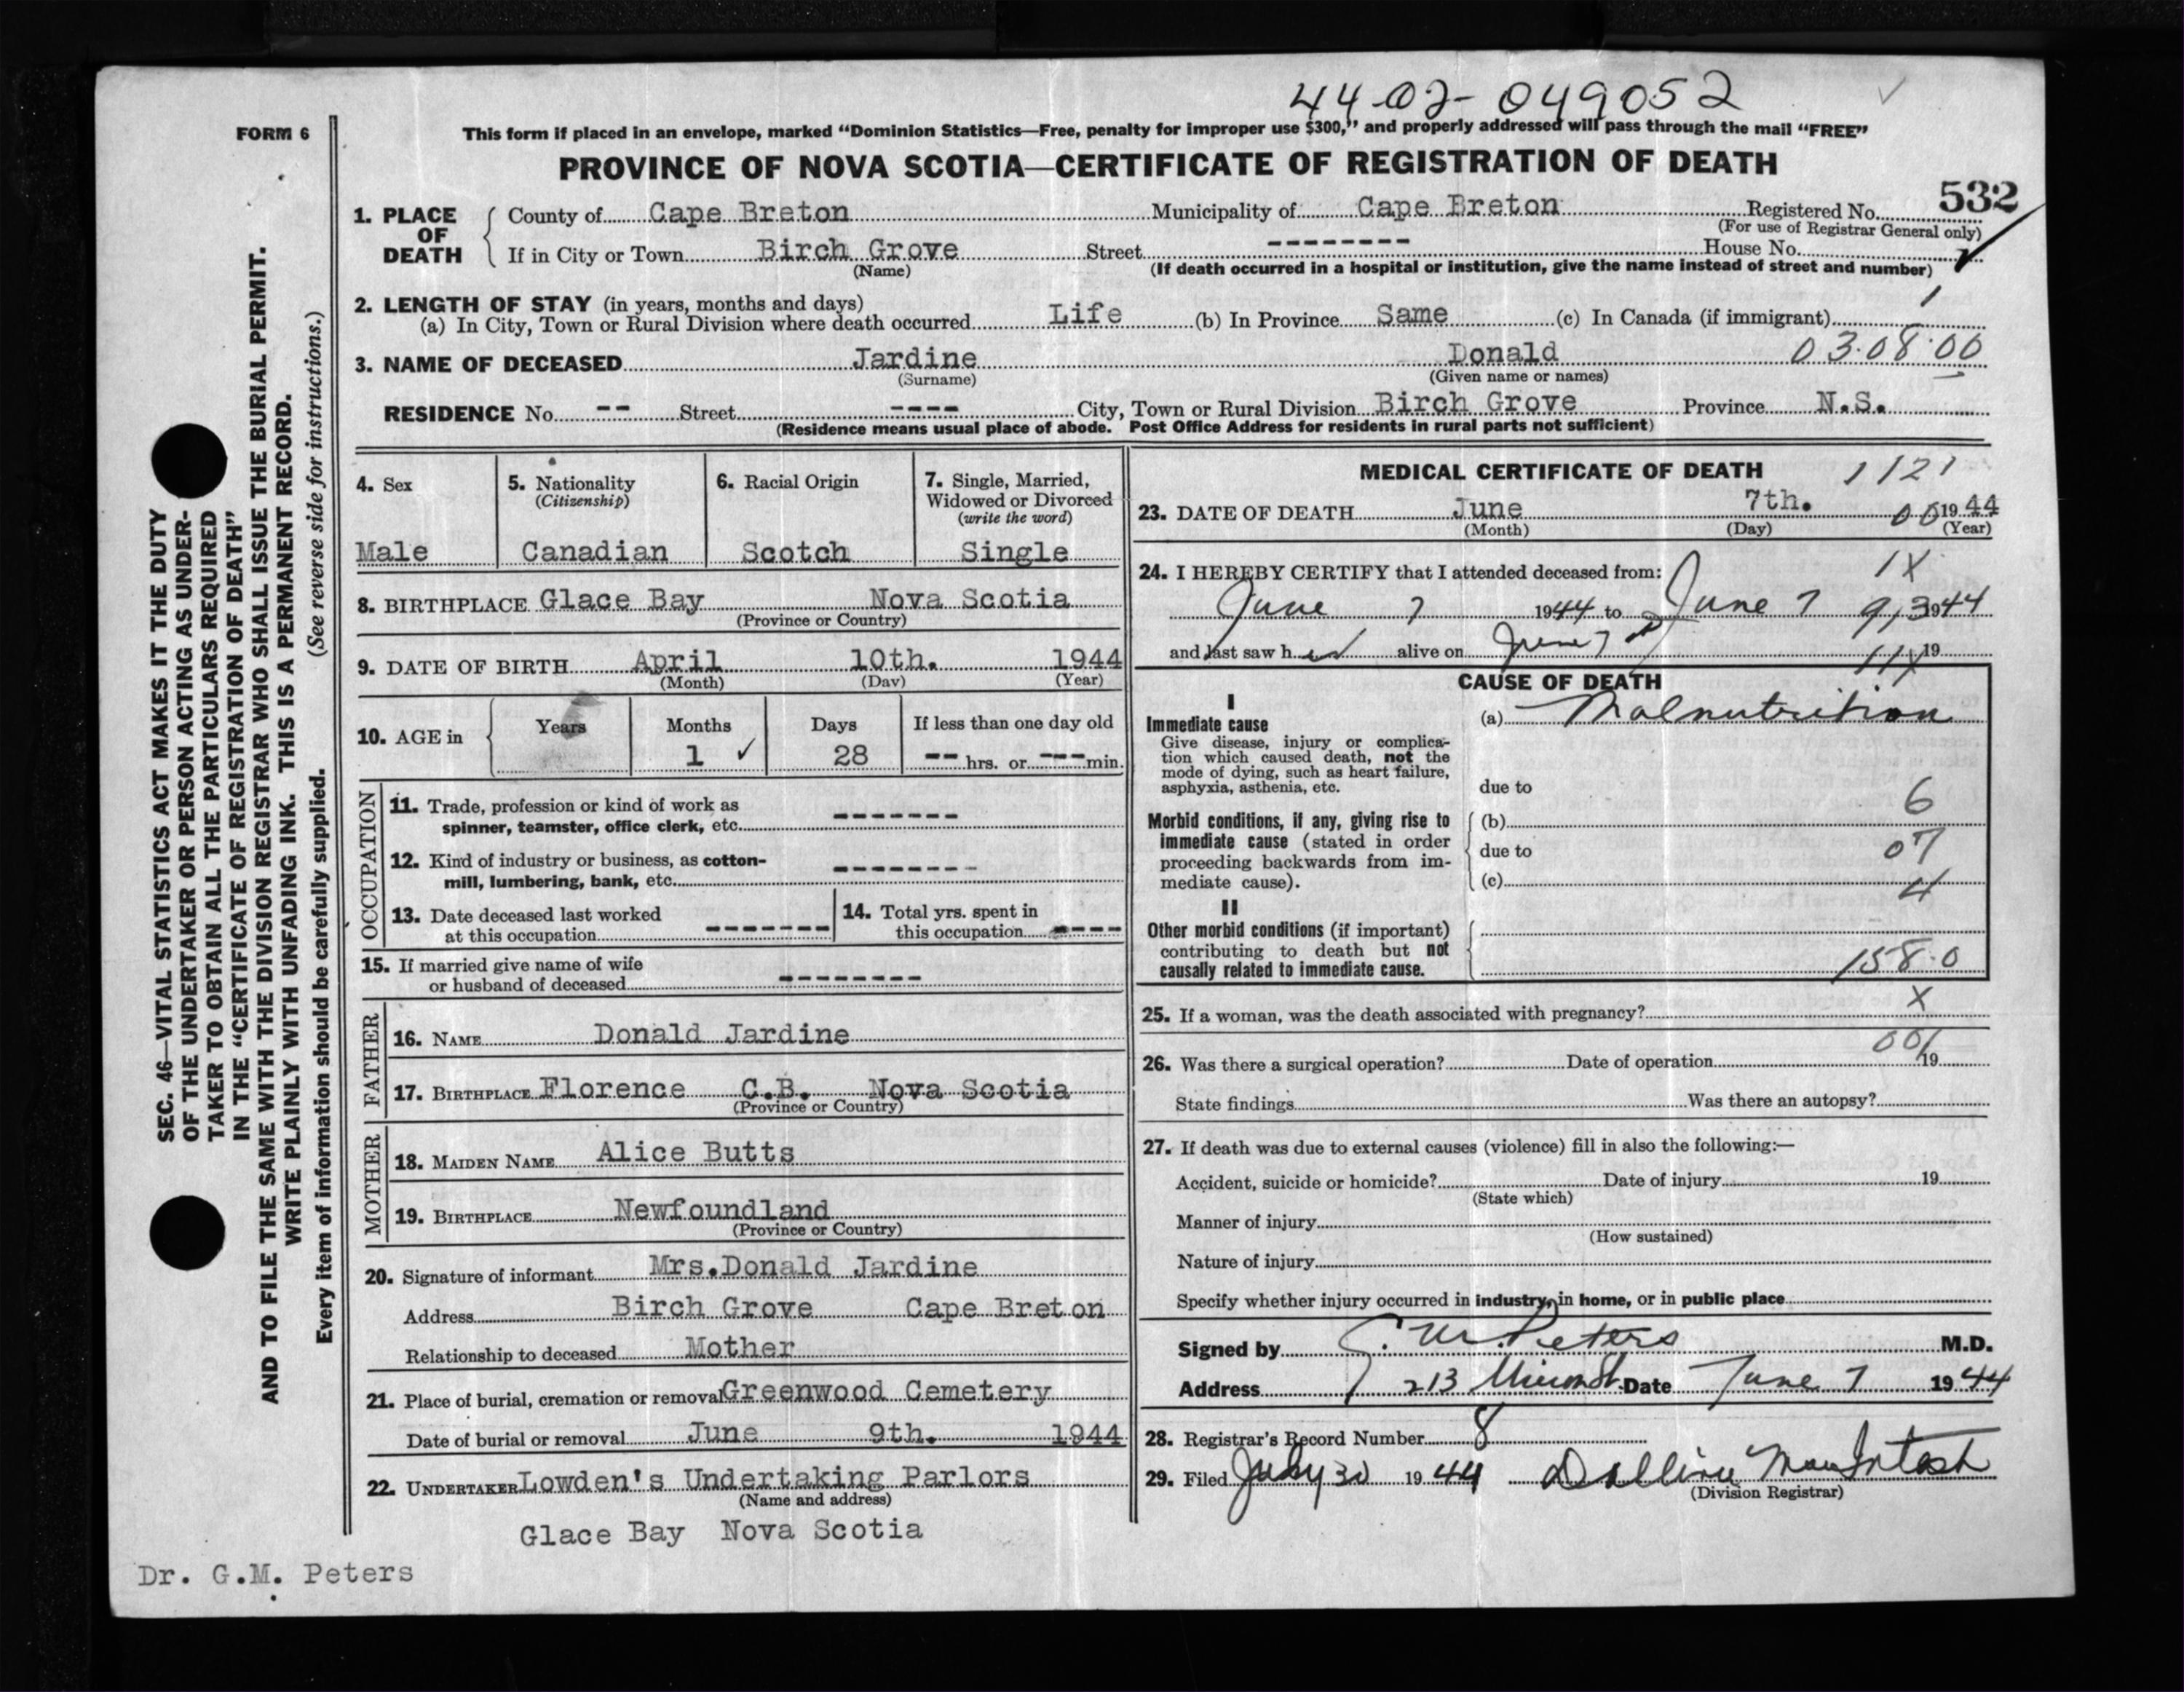 44-02-049052
FORM 6
This form if placed in an envelope, marked “Dominion Statistics—Free, penalty for improper use $300,” and properly addressed will pass through the mail “FREE”
PROVINCE OF NOVA SCOTIA—CERTIFICATE OF REGISTRATION OF DEATH
532
1. PLACE OF DEATH County of Cape Breton Municipality of Cape Breton Registered No.
(For use of Registrar General only)
If in City or Town Birch Grove Street -------- House No.
(Name) (If death occurred in a hospital or institution, give the name instead of street and number)
2. LENGTH OF STAY (in years, months and days) 1
(a) In City, Town or Rural Division where death occurred Life (b) In Province Same (c) In Canada (if immigrant)
3. NAME OF DECEASED Jardine Donald 03.08.00
(Surname) (Given name or names)
RESIDENCE No. -- Street ---- City, Town or Rural Division Birch Grove Province N.S.
(Residence means usual place of abode. Post Office Address for residents in rural parts not sufficient)
SEC. 46—VITAL STATISTICS ACT MAKES IT THE DUTY
OF THE UNDERTAKER OR PERSON ACTING AS UNDER-
TAKER TO OBTAIN ALL THE PARTICULARS REQUIRED
IN THE “CERTIFICATE OF REGISTRATION OF DEATH”
AND TO FILE THE SAME WITH THE DIVISION REGISTRAR WHO SHALL ISSUE THE BURIAL PERMIT.
WRITE PLAINLY WITH UNFADING INK. THIS IS A PERMANENT RECORD.
Every item of information should be carefully supplied. (See reverse side for instructions.)
4. Sex
Male
5. Nationality
(Citizenship)
Canadian
6. Racial Origin
Scotch
7. Single, Married,
Widowed or Divorced
(write the word)
Single
8. BIRTHPLACE Glace Bay Nova Scotia
(Province or Country)
9. DATE OF BIRTH April 10th. 1944
(Month) (Day) (Year)
10. AGE in Years Months Days If less than one day old
1 ✓ 28 -- hrs. or --- min.
OCCUPATION
11. Trade, profession or kind of work as
spinner, teamster, office clerk, etc. -------
12. Kind of industry or business, as cotton-
mill, lumbering, bank, etc. --------
13. Date deceased last worked
at this occupation -------
14. Total yrs. spent in
this occupation ----
15. If married give name of wife
or husband of deceased --------
FATHER
16. NAME Donald Jardine
17. BIRTHPLACE Florence C.B. Nova Scotia
(Province or Country)
MOTHER
18. MAIDEN NAME Alice Butts
19. BIRTHPLACE Newfoundland
(Province or Country)
20. Signature of informant Mrs.Donald Jardine
Address Birch Grove Cape Breton
Relationship to deceased Mother
21. Place of burial, cremation or removal Greenwood Cemetery
Date of burial or removal June 9th. 1944
22. UNDERTAKER Lowden's Undertaking Parlors
(Name and address)
Glace Bay Nova Scotia
Dr. G.M. Peters
MEDICAL CERTIFICATE OF DEATH 1121
23. DATE OF DEATH June 7th. 06 1944
(Month) (Day) (Year)
24. I HEREBY CERTIFY that I attended deceased from: 1X
June 7 1944 to June 7 1944
and last saw h alive on June 7 19
CAUSE OF DEATH
I
Immediate cause
Give disease, injury or complica-
tion which caused death, not the
mode of dying, such as heart failure,
asphyxia, asthenia, etc.
(a) Malnutrition
due to
Morbid conditions, if any, giving rise to
immediate cause (stated in order
proceeding backwards from im-
mediate cause).
(b) 6
due to 07
(c) 4
II
Other morbid conditions (if important)
contributing to death but not
causally related to immediate cause.
158.0
25. If a woman, was the death associated with pregnancy? X
26. Was there a surgical operation? Date of operation 19
State findings Was there an autopsy?
27. If death was due to external causes (violence) fill in also the following:—
Accident, suicide or homicide? Date of injury 19
(State which)
Manner of injury
(How sustained)
Nature of injury
Specify whether injury occurred in industry, in home, or in public place
Signed by G. M. Peters M.D.
Address 213 St. Date June 7 1944
28. Registrar's Record Number 8
29. Filed July 30 1944 MacIntosh
(Division Registrar)